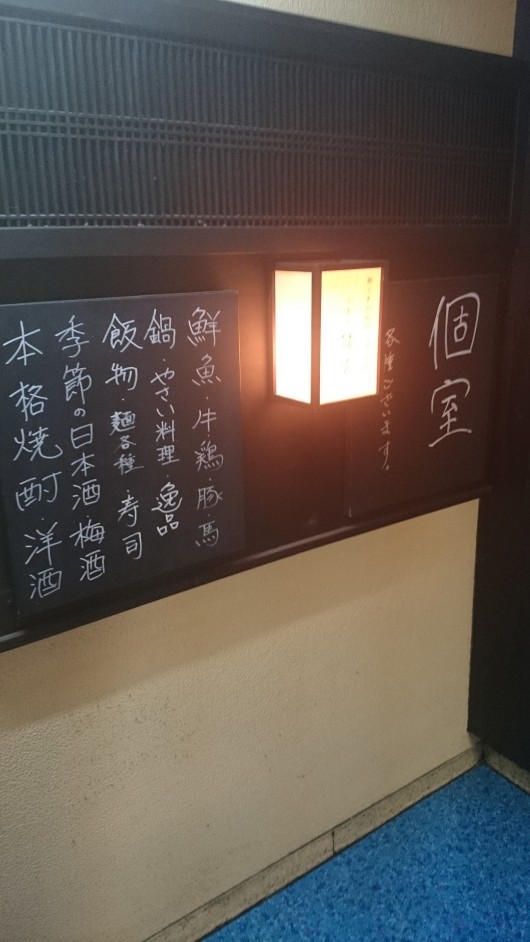 個室
各種ございます。
鮮魚・牛・鶏・豚・馬
鍋・やさい料理・逸品
飯物・麺各種・寿司
季節の日本酒・梅酒
本格焼酎・洋酒